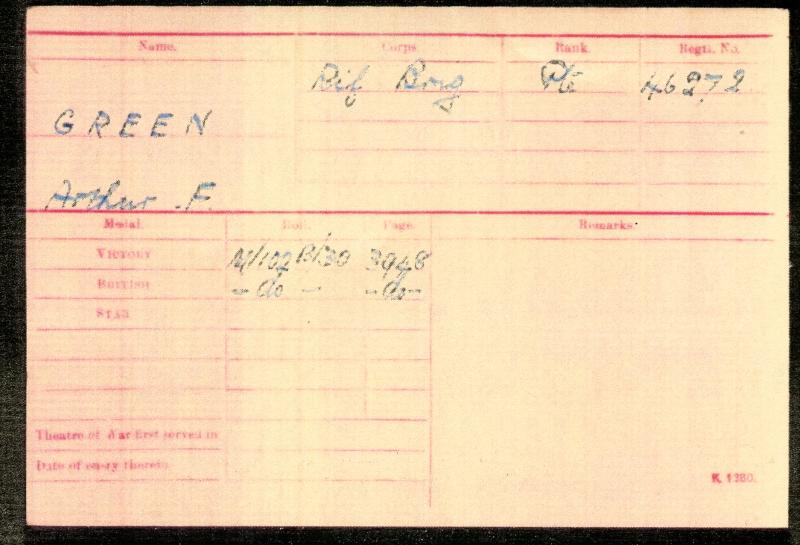 Name. Corps. Rank. Regtl. No.
Rif Brig Pte 46272
GREEN
Arthur F.
Medal. Roll. Page. Remarks.
VICTORY M/102 B/30 3948
BRITISH - do - - do -
STAR
Theatre of War first served in
Date of entry therein
K. 1380.